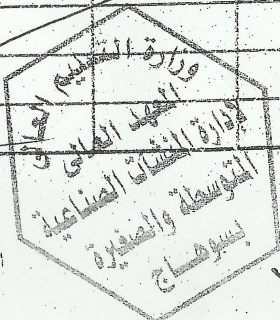 وزارة التعليم العالى
المعهد العالى
لإدارة المنشآت الصناعية
المتوسطة والصغيرة
بسوهاج